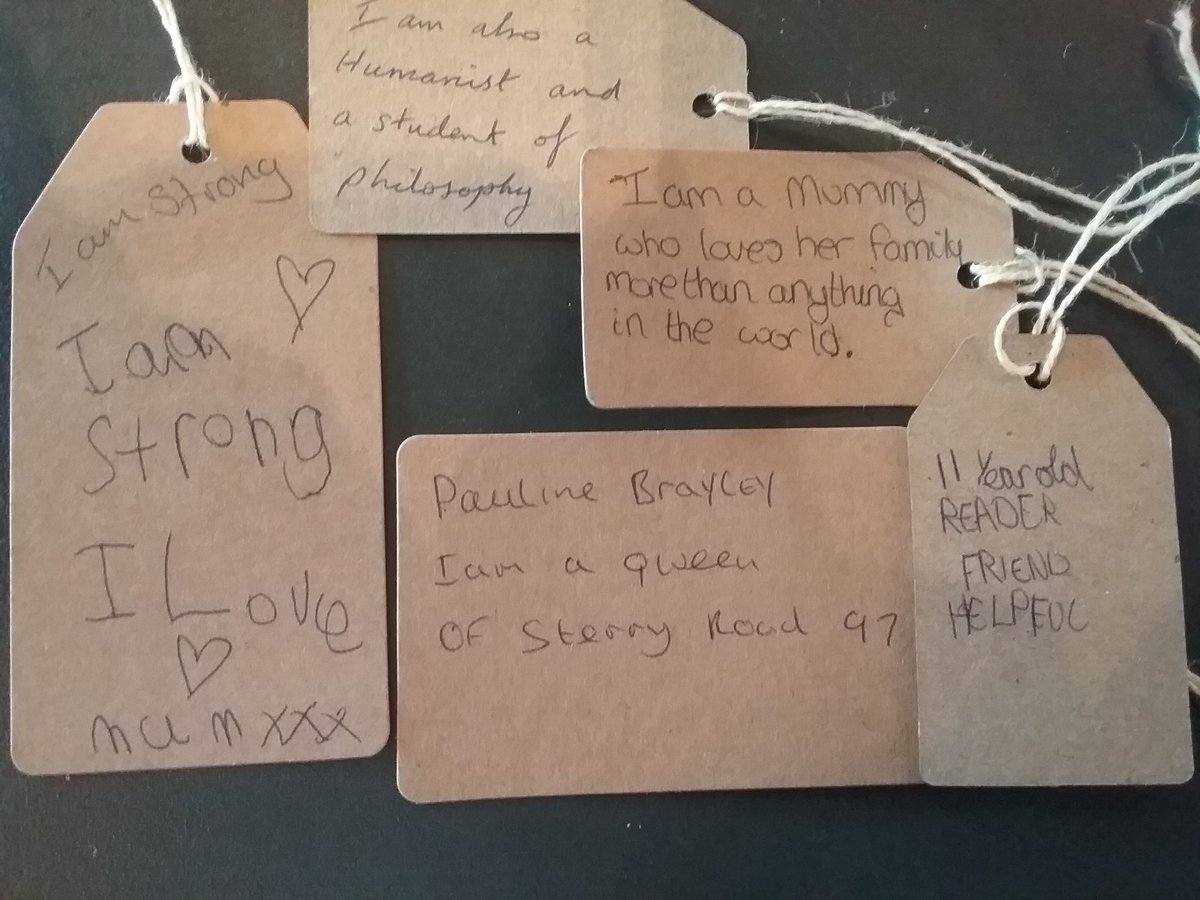 I am strong
I am
strong
I Love
mum xxx
I am also a
Humanist and
a student of
philosophy
I am a Mummy
who loves her family
more than anything
in the world.
Pauline Brayley
I am a qween
OF Sterry Road 97
11 Year old
READER
FRIEND
HELPFUL